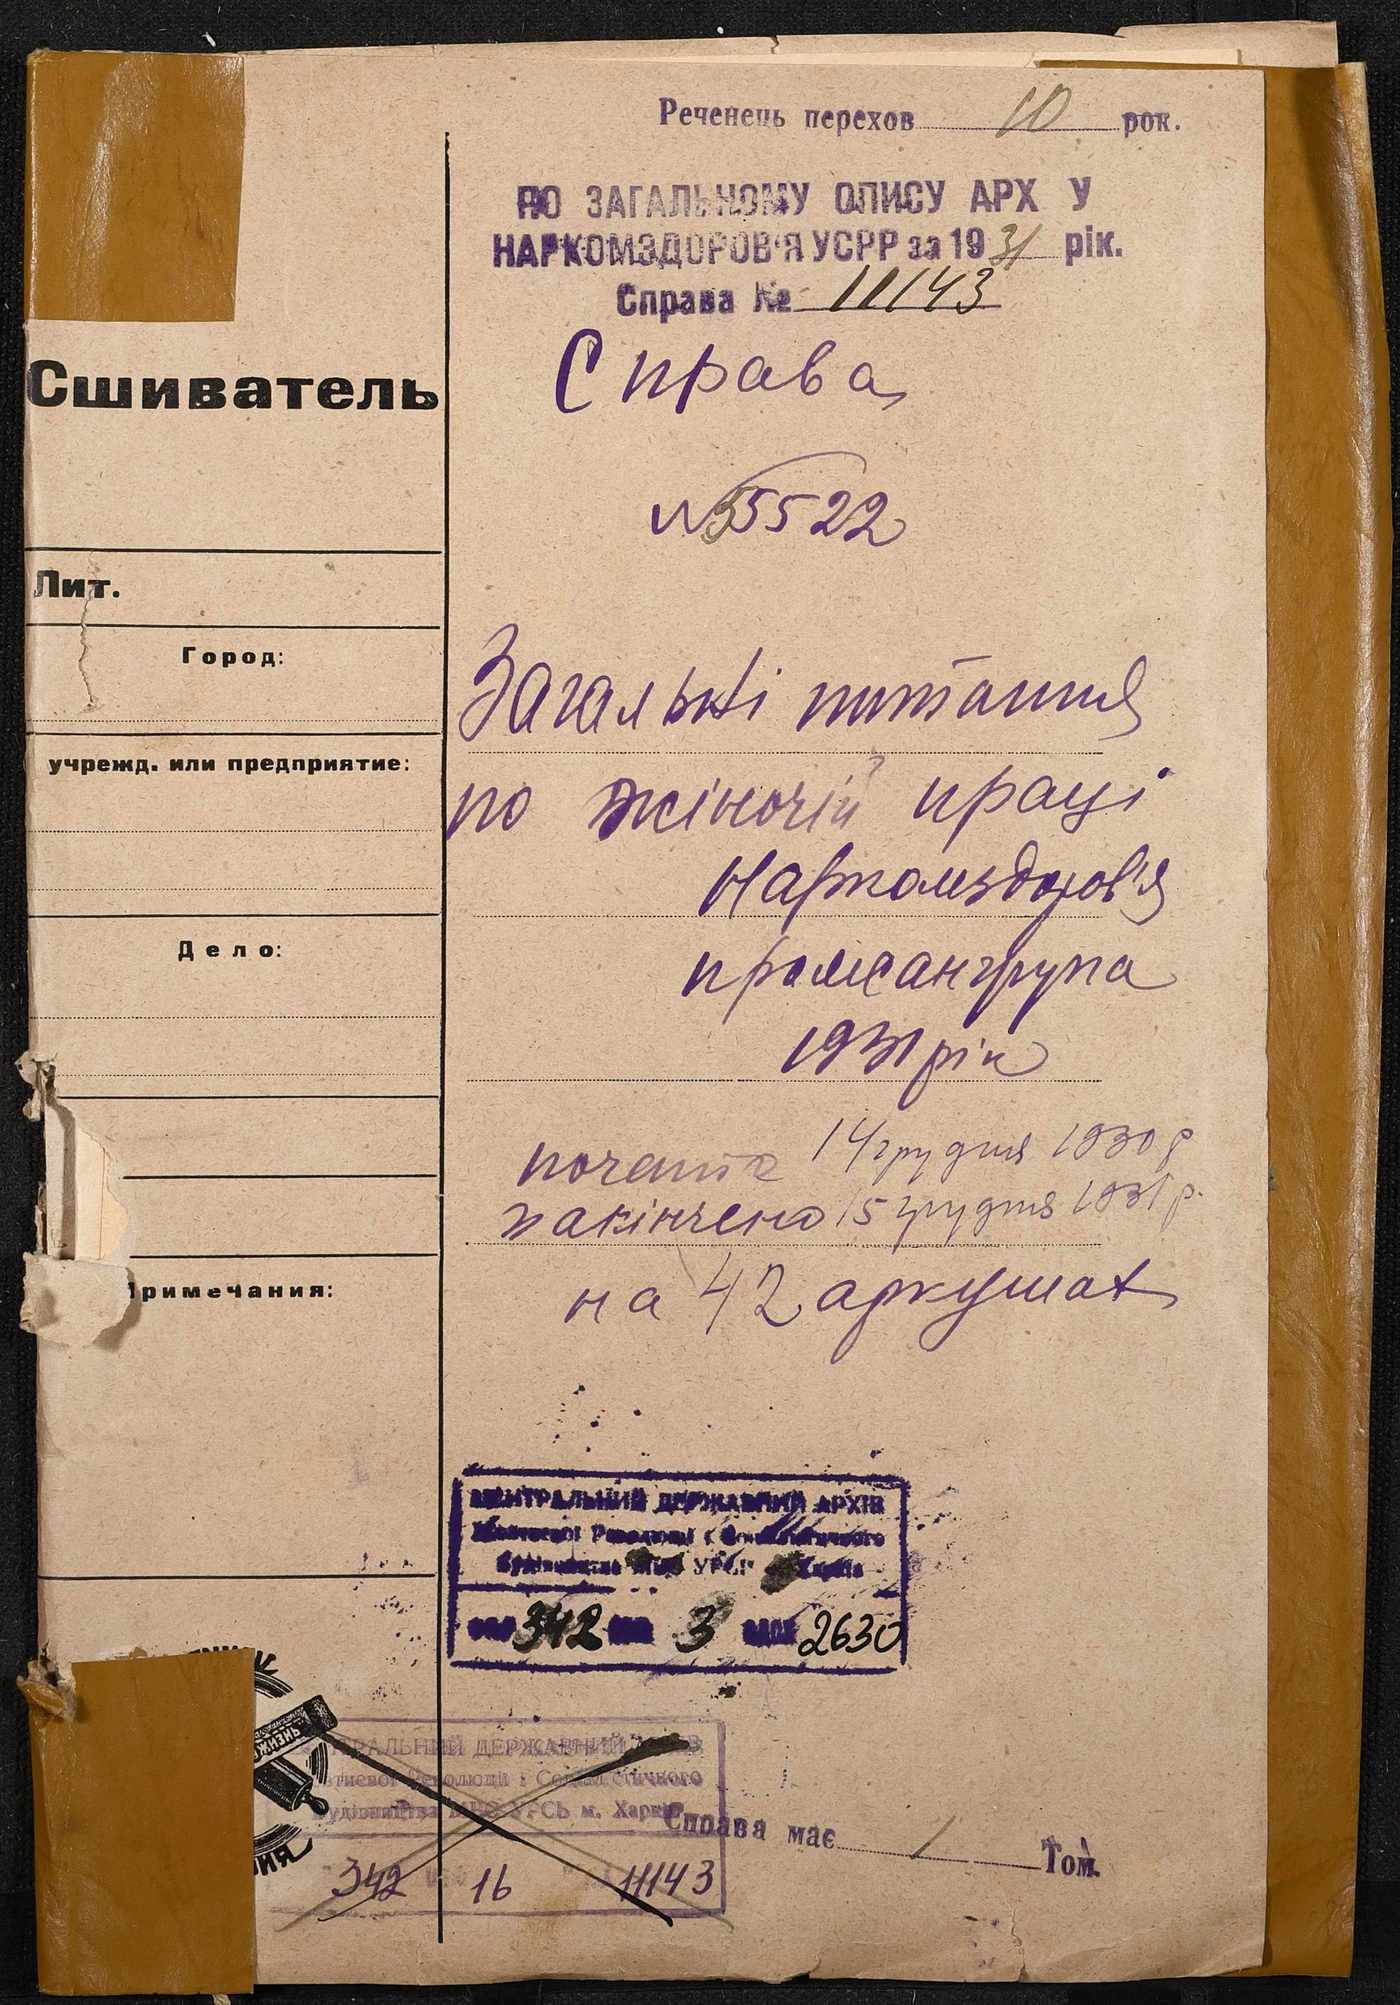 Реченець перехов 10 рок.
ПО ЗАГАЛЬНОМУ ОПИСУ АРХ У
НАРКОМЗДОРОВ'Я УСРР за 1931 рік.
Справа № 11143
Справа
№ 5522
Загальні питання
по жіночій праці
Наркомздоров'я
промсангрупа
1931 рік
почато 14 грудня 1930 р
закінчено 15 грудня 1931 р.
на 42 аркушах
Сшиватель
Лит.
Город:
учрежд. или предприятие:
Дело:
Примечания:
ЦЕНТРАЛЬНИЙ ДЕРЖАВНИЙ АРХІВ
Жовтневої Революції і Соціалістичного
Будівництва УРСР Харків
342 3 2630
ТРАЛЬНИЙ ДЕРЖАВНИЙ В
втневої Революції і Соціалістичного
Будівництва МВС УРСР м. Харків
342 16 11143
Справа має 1 Том.